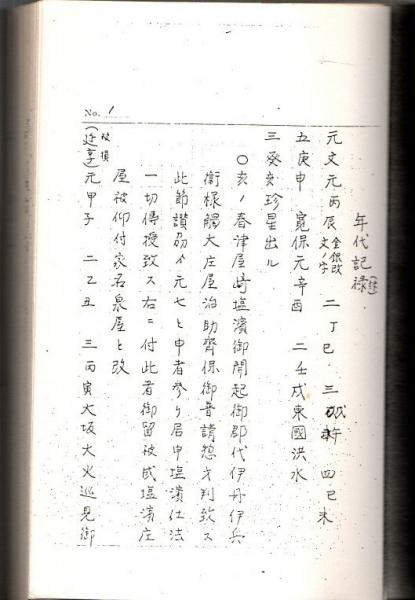 No. 1
年代記禄
元文元丙辰 金銀改文ノ字 二丁巳 三戊午 四己未
五庚申 寛保元辛酉 二壬戌東國洪水
三癸亥珍星出ル
〇亥ノ春津屋崎塩濱御開起御郡代伊丹伊兵
衛様觸大庄屋治助齊保御普請惣才判致ス
此節讃劦ゟ元七と申者参り居申塩濱仕法
一切傳授致ス右ニ付此者御留被成塩濱庄
屋被仰付家名泉屋と改
破損
(延享)元甲子 二乙丑 三丙寅大坂大火巡見御